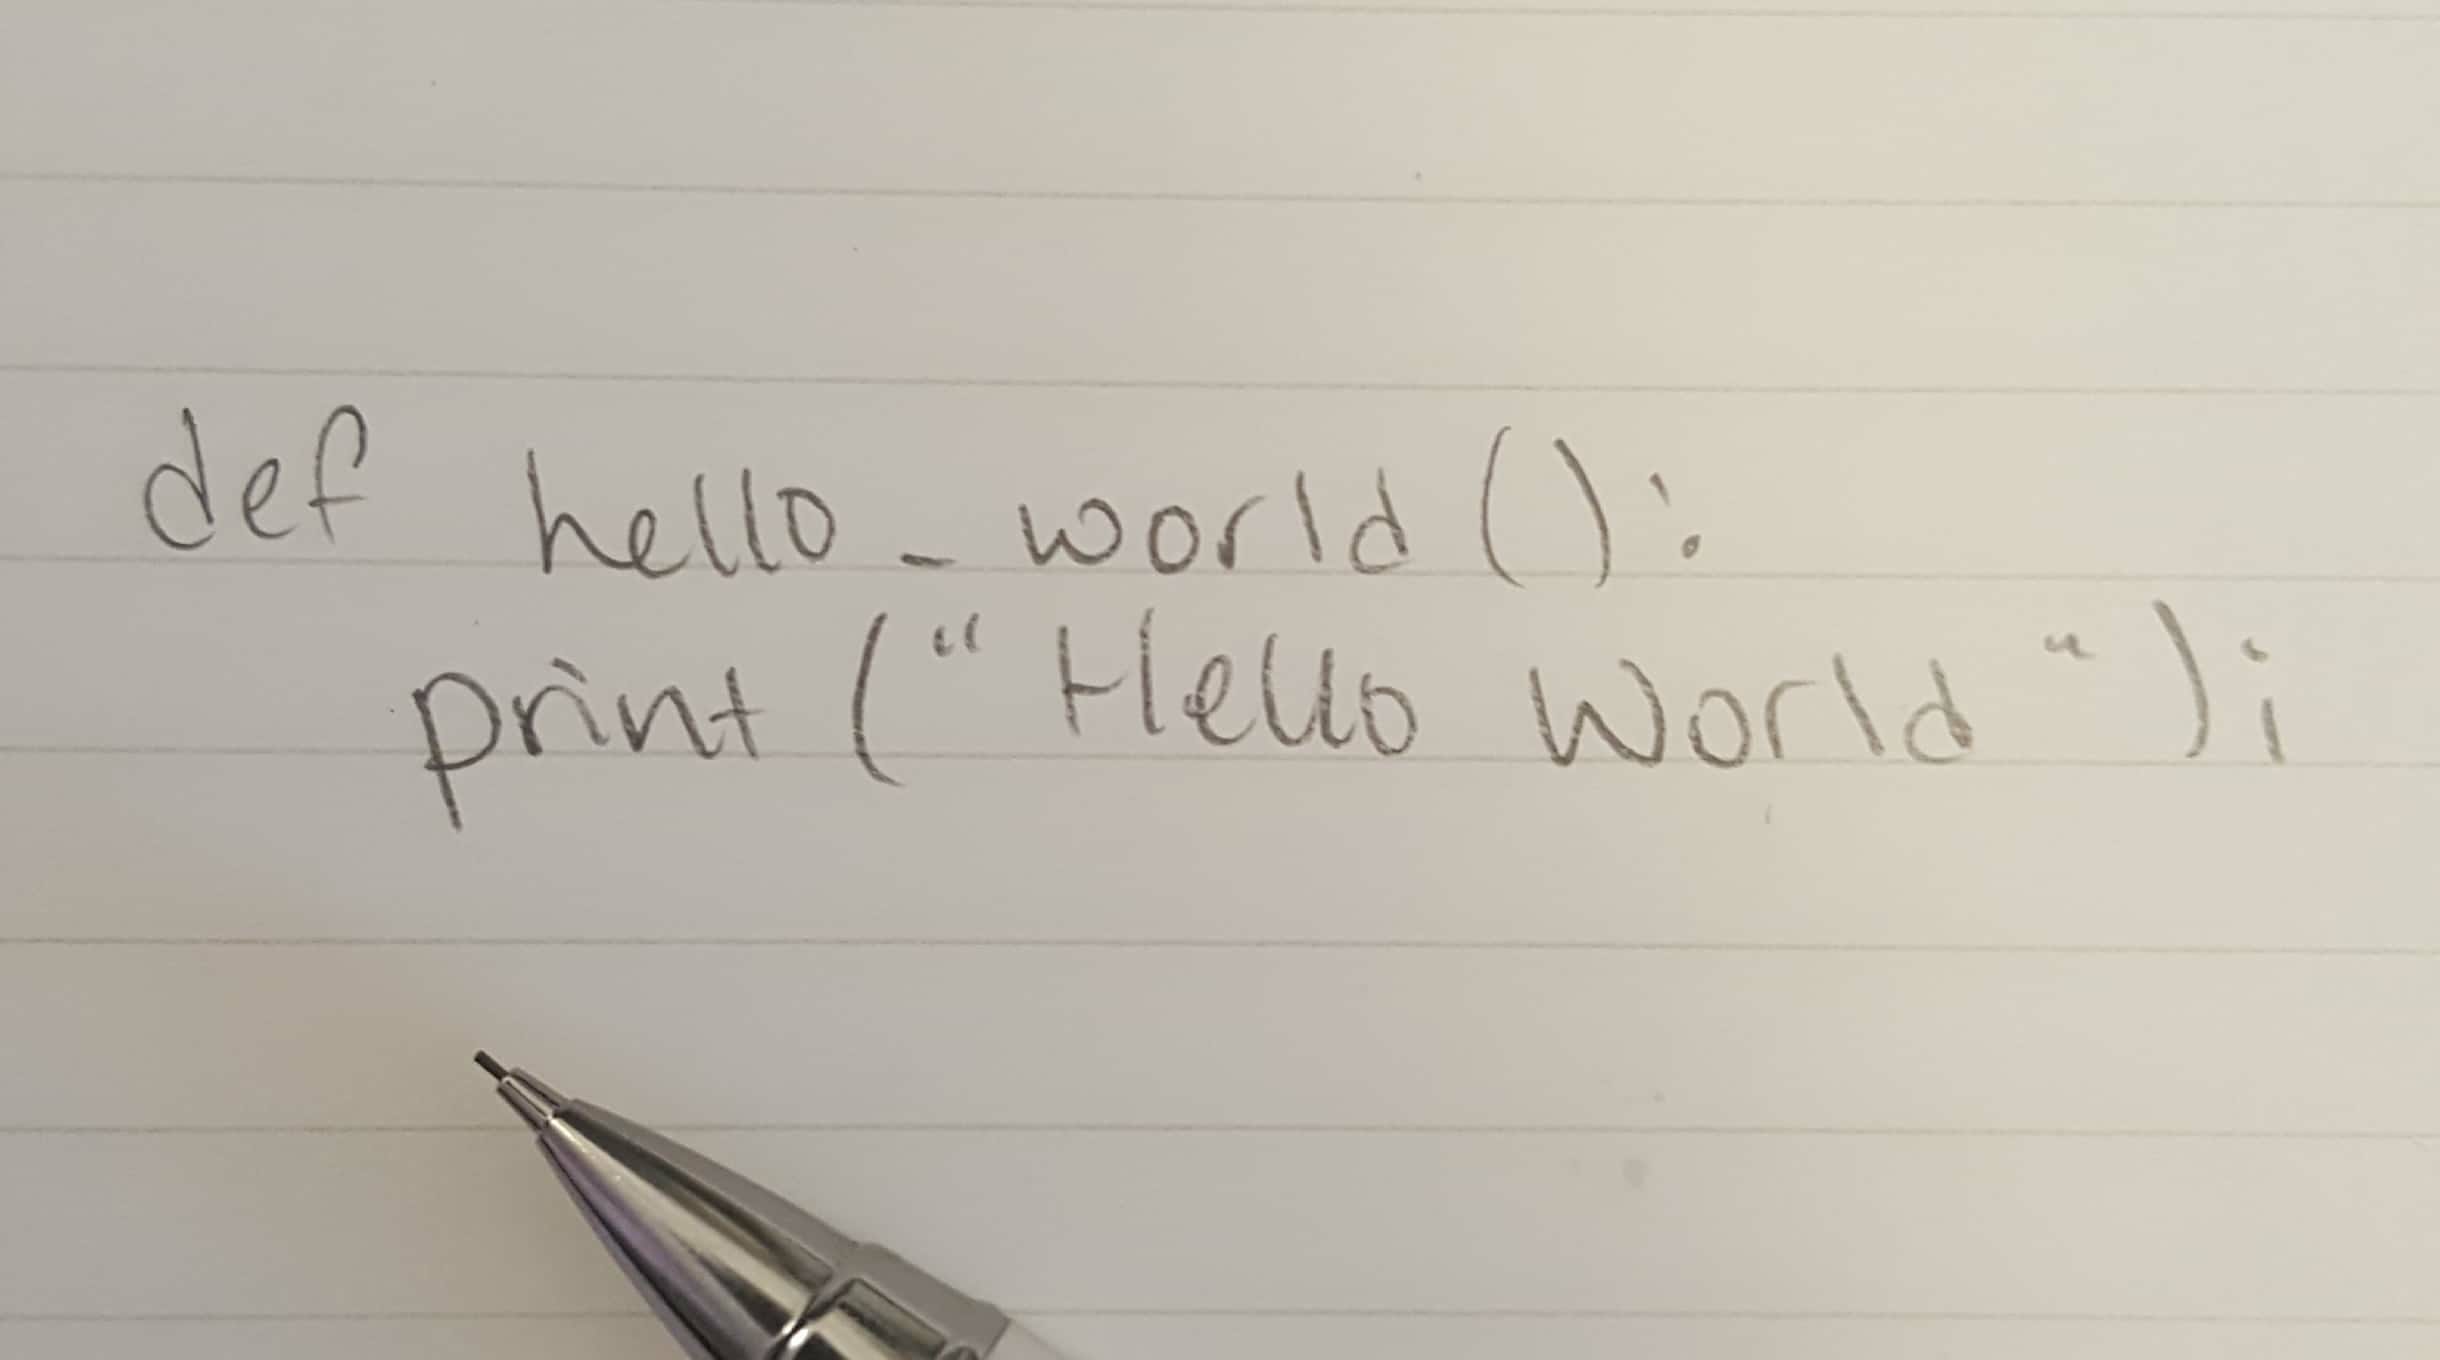 def hello_world():
print("Hello World");